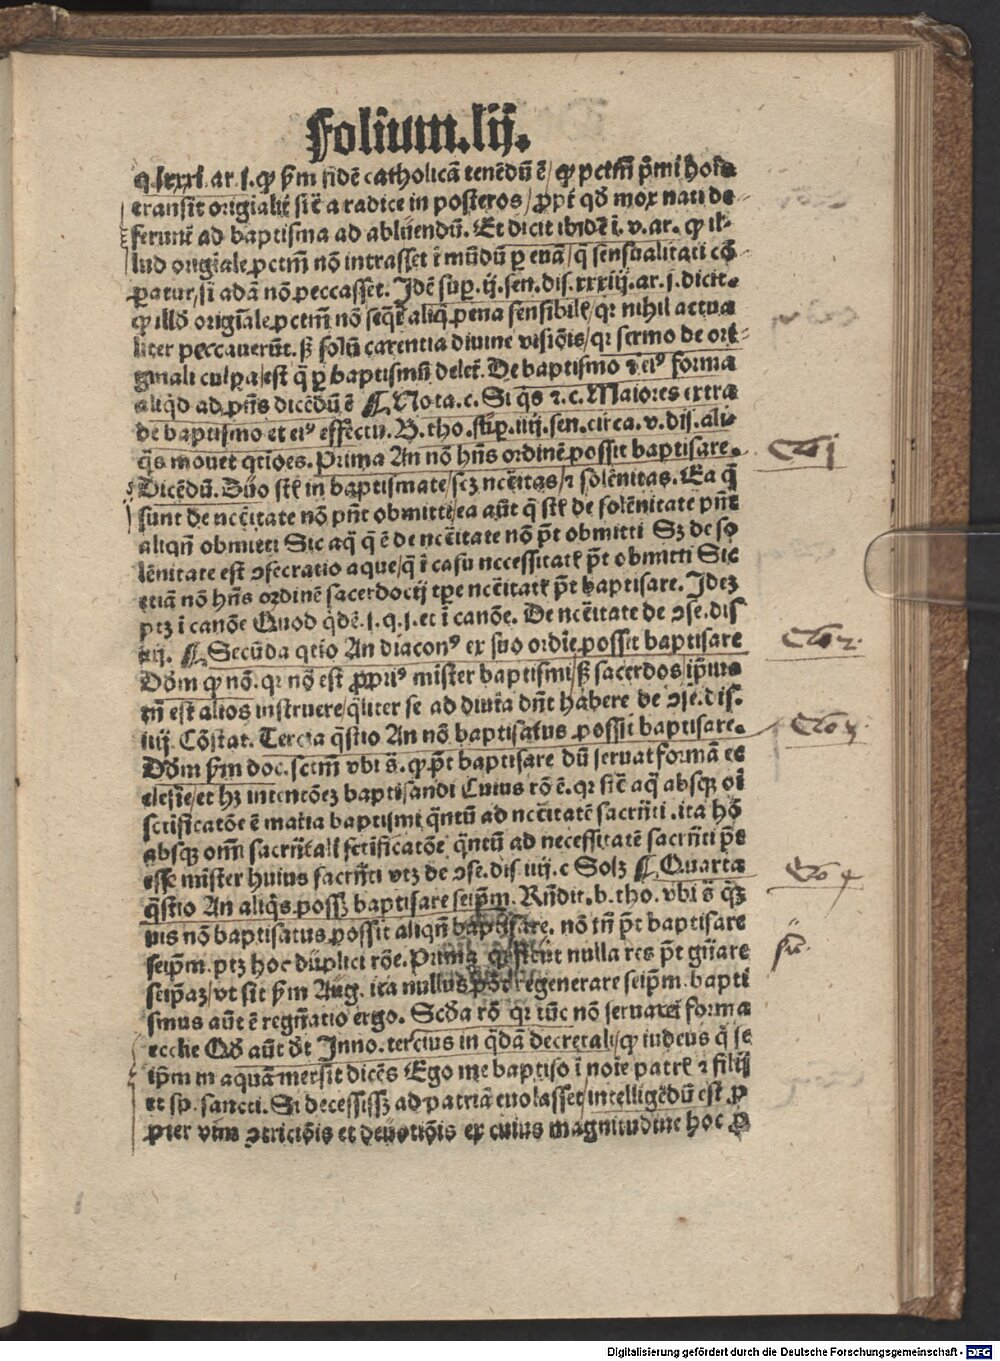 Folium.lij.
q lxxxi.ar.j.ꝙ ẜm fidē catholicā tenēdū ē/ꝙ pctm̄ pͥmi hoīs
transit originalit̄ sic̄ a radice in posteros/ꝓpt̄ qd̄ mox nati de⸗
ferunt̄ ad baptisma ad abluendū. Et dicit ibidē i.v.ar.ꝙ il⸗
lud originale pctm̄ nō intrasset ī mūdū ꝑ euā/q̄ sensualitati cō
paratur/si adā nō peccasset. Idē sup̄.ij.sen.dis.xxxiij.ar.j.dicit.
ꝙ illd̄ originale pctm̄ nō seqt̄ aliq̄ pena sensibil̄/qꝛ nihil actua
liter peccauerūt.ß solū carentia diuine visiōis/qꝛ sermo de ori⸗
ginali culpa/est q̄ ꝑ baptismū delet̄. De baptismo ⁊ eiꝰ forma
aliqd̄ ad pn̄s dicēdū ē ¶ Nota.c. Si q̄s ⁊.c. Maiores extra
de baptismo et eiꝰ effectu. B.tho.sup̄.iiij.sen.circa.v.dis.ali⸗
q̄s mouet qtiōes. Prima An nō hn̄s ordinē possit baptisare.
Dicēdū. Duo st̄ in baptismate/scꝫ nc̄citas/⁊ solēnitas. Ea q̄
sunt de nc̄citate nō pn̄t obmitti/ea aūt q̄ st̄ de solēnitate pn̄t
aliqn̄ obmitti Sic aq̄ q̄ ē de nc̄citate nō pt̄ obmitti Sꝫ de so
lēnitate est ꝯsecratio aque/q̄ ī casu necessitat̄ pt̄ obmitti Sic
etiā nō hn̄s ordinē sacerdotij tꝑe nc̄citat̄ pt̄ baptisare. Idez
ptꝫ ī canōe Quod q̄dē.j.q.j.et ī canōe. De nc̄citate de ꝯse.dis
iiij. ¶ Secūda qtio An diaconꝰ ex suo ordīe possit baptisare
Dd̄m ꝙ nō.qꝛ nō est ꝓpriꝰ mīster baptismi/ß sacerdos/ip̄ius
tn̄ est alios instruere/q̄liter se ad diuīa dn̄t habere de ꝯse.dis.
iiij. Cōstat. Tercia q̄stio An nō baptisatus possit baptisare.
Dd̄m ẜm doc.sctm̄ vbi s̄.ꝙ pt̄ baptisare dū seruat formā ec
clesie/et hꝫ intentōeꝫ baptisandi Cuius rō ē.qꝛ sic̄ aq̄ absqꝫ oī
sctificatōe ē matīa baptismi q̄ntū ad nc̄citatē sacrn̄ti.ita hō
absqꝫ om̄i sacrn̄tali sctificatōe q̄ntū ad necessitatē sacrn̄ti pt̄
esse mīster huius sacrn̄ti vtꝫ de ꝯse.dis.iiij.c Solꝫ ¶ Quarta
q̄stio An aliq̄s possꝫ baptisare seip̄m. Rn̄dit.b.tho.vbi s̄ q̄ꝫ
uis nō baptisatus possit aliqn̄ baptisare. nō tn̄ pt̄ baptisare
seip̄m.ptꝫ hoc duplici rōe. Prima qꝛ sicut nulla res pt̄ gn̄are
seip̄aꝫ/vt sit ẜm Aug.ita nullus pōt regenerare seip̄m.bapti
smus aūt ē regn̄atio ergo. Scd̄a rō qꝛ tūc nō seruatet forma
ecclie Qd̄ aūt dt̄ Inno.tercius in q̄dā decretali/ꝙ iudeus q̄ se
ip̄m in aquā mersit dicēs Ego me baptiso ī noīe patrẜ ⁊ filij
et sp̄.sancti. Si decessisꝫ ad patriā euolasset/intelligēdū est ꝓ
pter vim ꝯtriciōis et deuotiōis ex cuius magnitudine hoc ꝓ
Digitalisierung gefördert durch die Deutsche Forschungsgemeinschaft - DFG